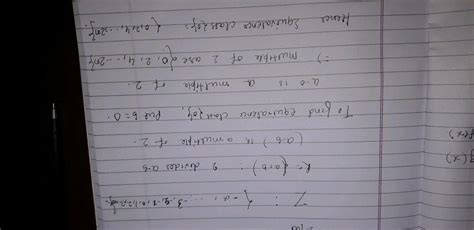 Z : { ... -3, -2, -1, 0, 1, 2,
R = { (a,b) : 2 divides a-b
(a-b) is a multiple of 2.
To find equivalence class {0}, put b = 0.
a-0 is a multiple of 2.
⇒ multiple of 2 are {0, 2, 4, ... 2n}
Hence Equivalence class {0} : {0, 2, 4, ... 2n}.
g(x)
f(x')